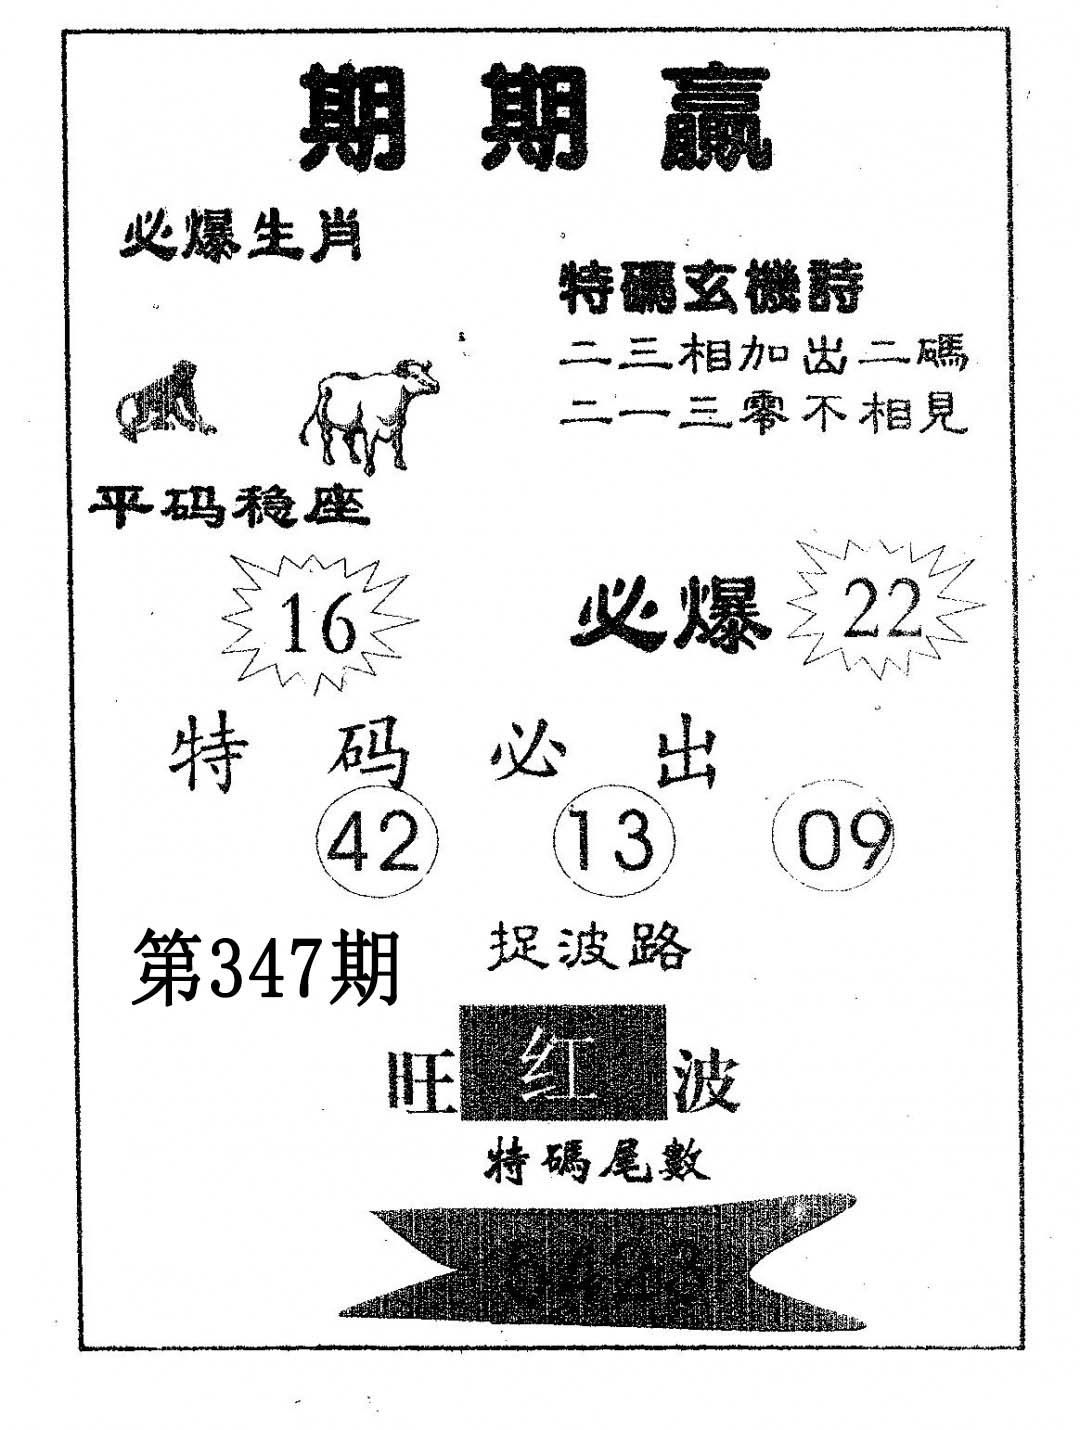 期期赢
必爆生肖
特碼玄機詩
二三相加出二碼
二一三零不相見
平码稳座
16
必爆 22
特码必出
42 13 09
第347期
捉波路
旺红波
特碼尾數